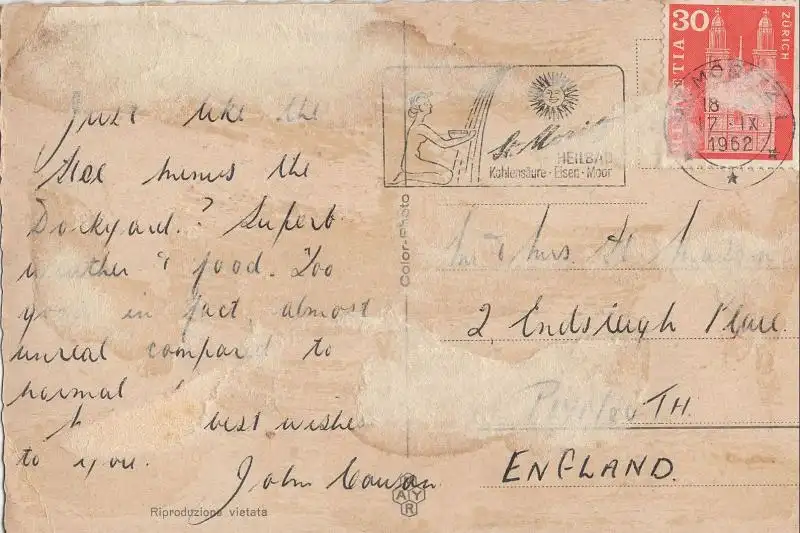 Just like the
Hoe minus the
Dockyard? Superb
weather & food. Too
good in fact, almost
unreal compared to
normal
best wishes
to you.
John
Riproduzione vietata
Color-Photo
AYR
St. Moritz
HEILBAD
Kohlensäure - Eisen - Moor
30
HELVETIA
ZÜRICH
ST. MORITZ 1
18
17.-IX
1962
Mr & Mrs
2, Endsleigh Place.
PLYMOUTH.
ENGLAND.